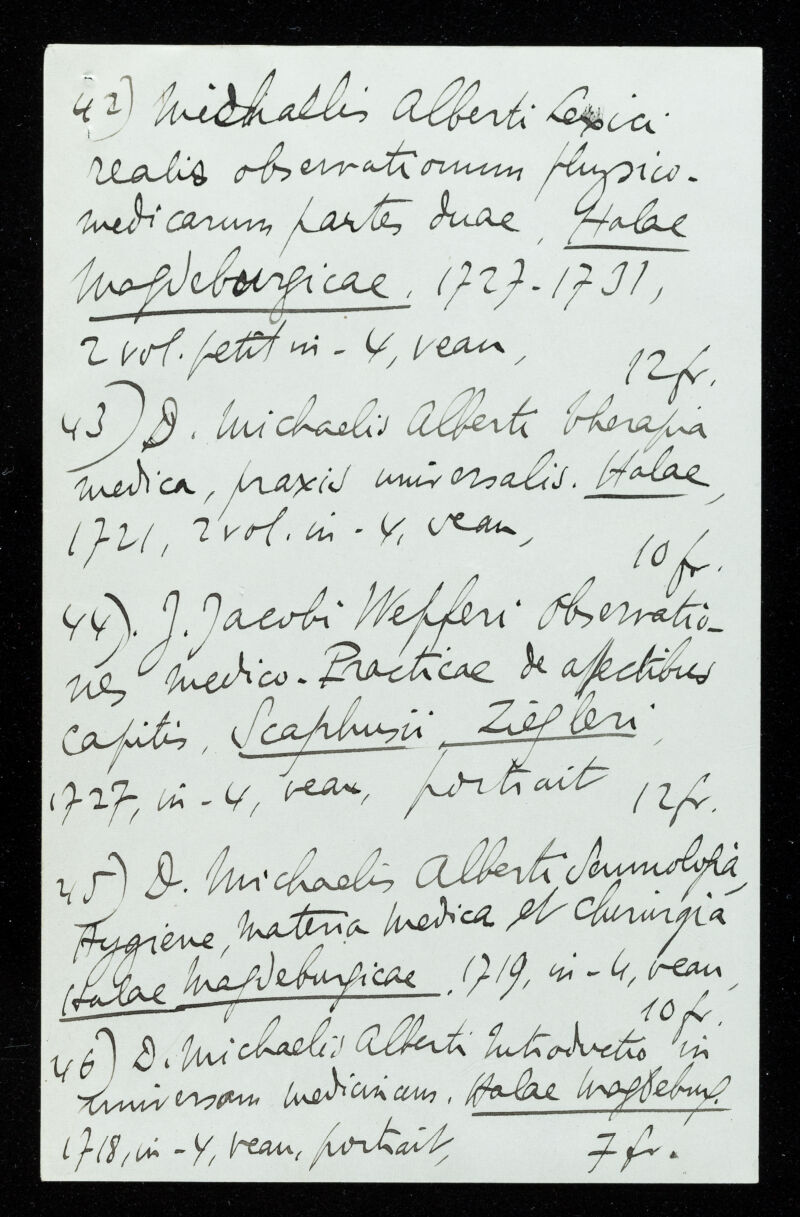 42) Michaelis Alberti Lexici
realis observationum physico-
medicarum partes duae, Halae
Magdeburgicae, 1727-1731,
2 vol. petit in-4, veau,
12 fr.
43) D. Michaelis Alberti therapia
medica, praxis universalis. Halae,
1721, 2 vol. in-4, veau,
10 fr.
44). J. Jacobi Wepferi Observatio-
nes medico-Practicae de affectibus
capitis, Scaphusii, Ziegleri,
1727, in-4, veau, portrait 12 fr.
45) D. Michaelis Alberti,
Hygiene, materia medica et chirurgia
Halae Magdeburgicae, 1719, in-4, veau,
10 fr.
46) D. Michaelis Alberti Introductio in
universam medicinam. Halae Magdeburg.
1718, in-4, veau, portrait, 7 fr.